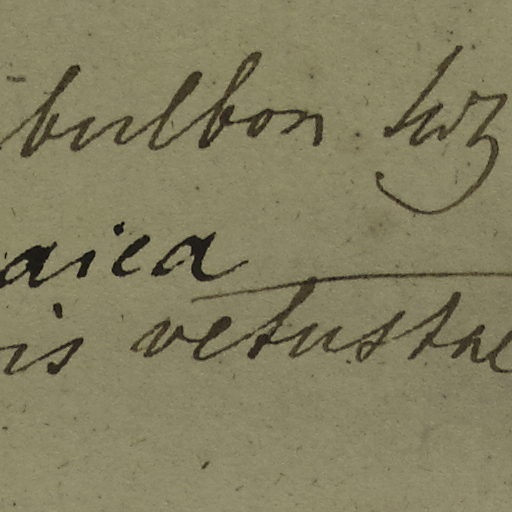 bulbon
aica
is vetustae